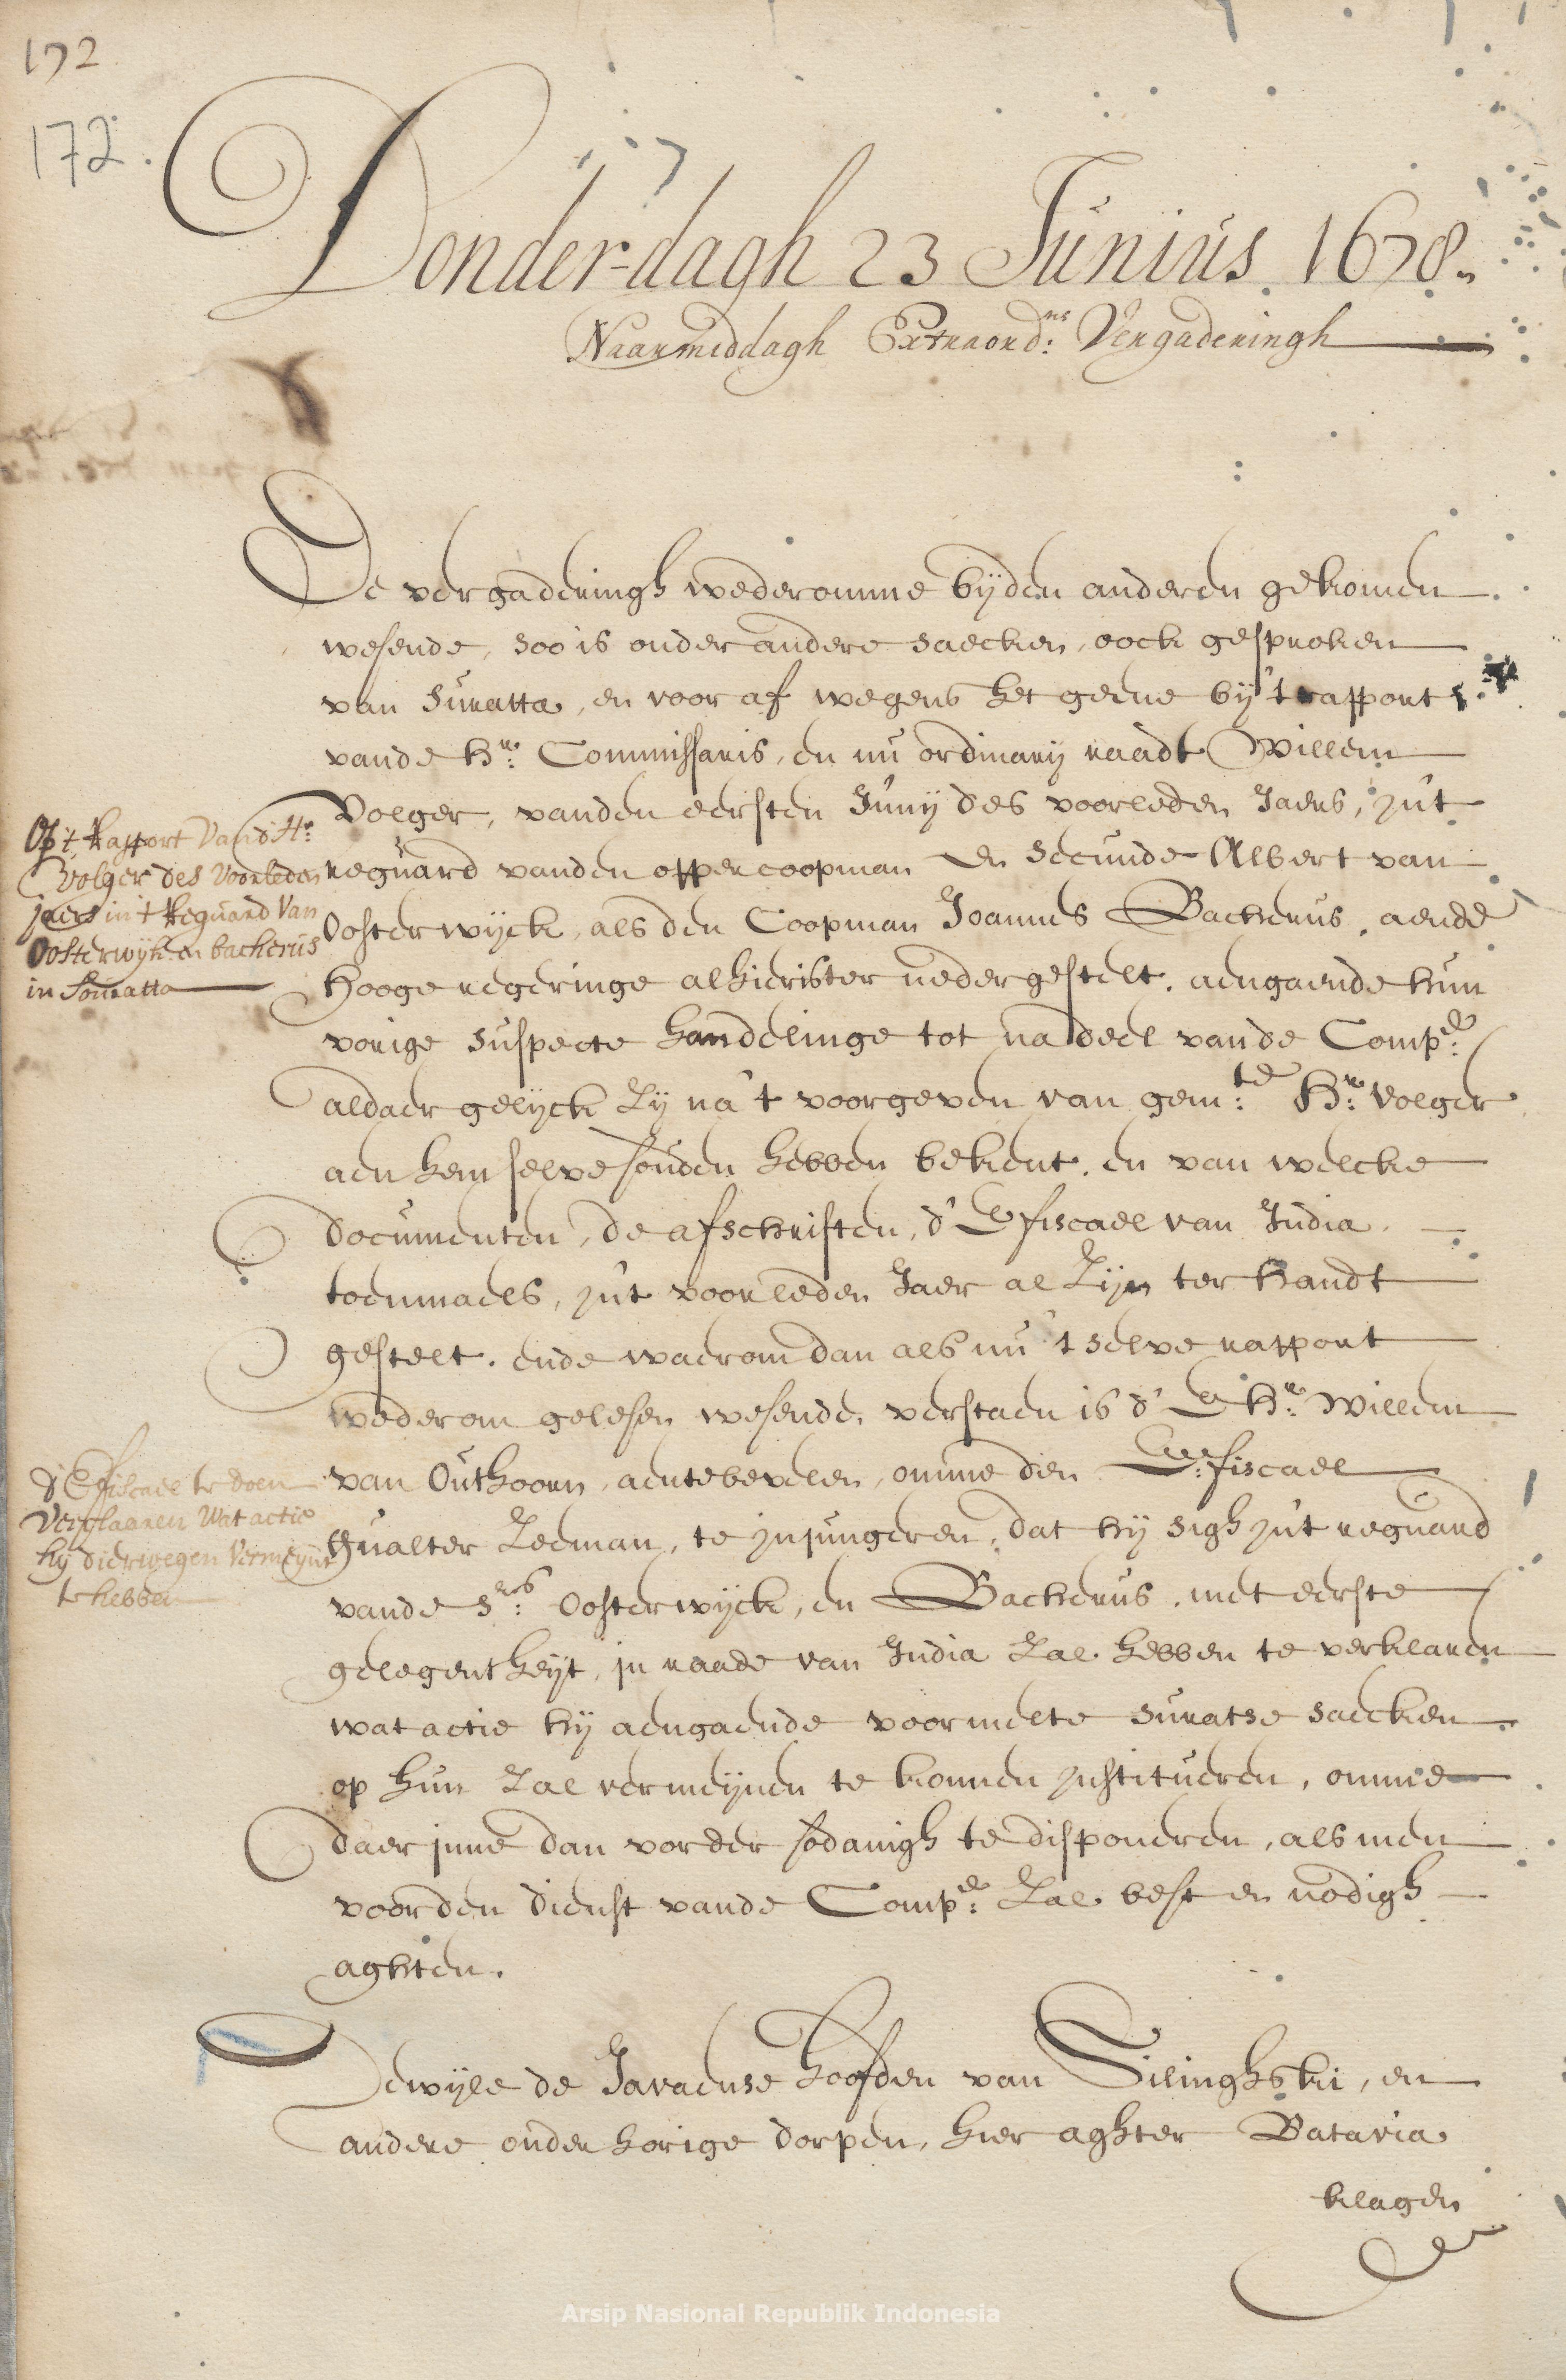 172
172.
Donder-dagh 23 Junius. 1678.
Naarmiddagh Extraord:re Vergaderingh
De vergaderingh wederomme bijden anderen gekomen
wesende, soo is onder andere saecken, oock gesproken
van Suratta, en voor af wegens het gene bij 't rapport
vande Hr: Commissaris, en nu ordinarij raadt Willem
Volger, vanden eersten Junij des voorleden Jaers, in't
reguard vanden oppercoopman en secunde Albert van
Oosterwijck, als den Coopman Joannes Bacherus, aende
Hooge regeringe alhier is ter nedergestelt, aengaende hun
vorige suspecte handelinge tot nadeel vande Compe:
aldaer gelijck zij na 't voorgeven van gem:te Hr: Volger
aen hem selve souden hebben bekent, en van welcke
documenten, de afschriften, d' E fiscael van India
toenmaels, in't voorleden Jaer al zijn ter handt
gestelt. ende waerom dan als nu 't selve rapport
wederom gelesen wesende, verstaen is d' E Hr: Willem
van Outhoorn, aentebevelen, omme den E: fiscael
Gualter Zeeman, te injungeren, dat hij sigh in't reguard
vande Srs: Oosterwijck, en Bacherus, met eerste
gelegentheijt, in raade van India zal hebben te verklaren
wat actie hij aengaende voormelte Suratse saecken
op hun zal vermeijnen te konnen institueren, omme
daer inne dan vorder sodanigh te disponeren, als men
voor den dienst vande Compe: zal best en nodigh
aghten.
Op 't Rapport Van d' Hr:
Volger des Voorleden
jaers in 't Reguard Van
Oosterwijk en bacherus
in Souratta
d' E fiscael te doen
Verklaaren Wat actie
hij dierwegen Vermeijnt
te hebben
Dewijle de Javaense hoofden van Silinghski, en
andere onderhorige dorpen, hier aghter Batavia
klagen
Arsip Nasional Republik Indonesia